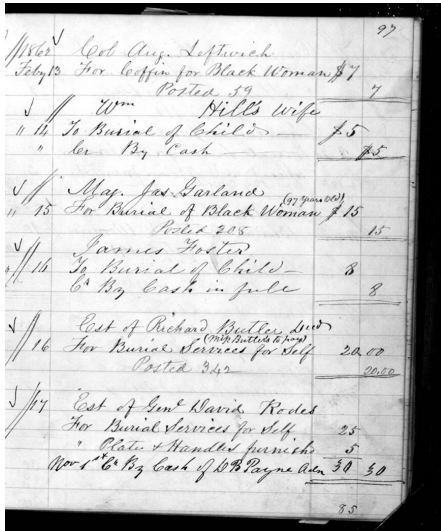 97
1862 Col Aug. Leftwich
Feby 13 For Coffin for Black Woman $7
Posted 59 7
// Wm Hill's Wife
" 14 To Burial of Child - $5
" Cr By Cash $5
// Maj. Jas Garland
(97 Years Old)
" 15 For Burial of Black Woman $15
Posted 208 15
// James Foster
" 16 To Burial of Child - 8
Cr By Cash in full 8
// Est of Richard Butler Decd
(Miss Butler to pay)
16 For Burial Services for Self 20.00
Posted 342 20.00
// 17 Est of Genl David Rodes
For Burial Services for Self 25
" Plate & Handles furnishd 5
Nov 1st Cr By Cash of D B Payne Adm 30 30
85